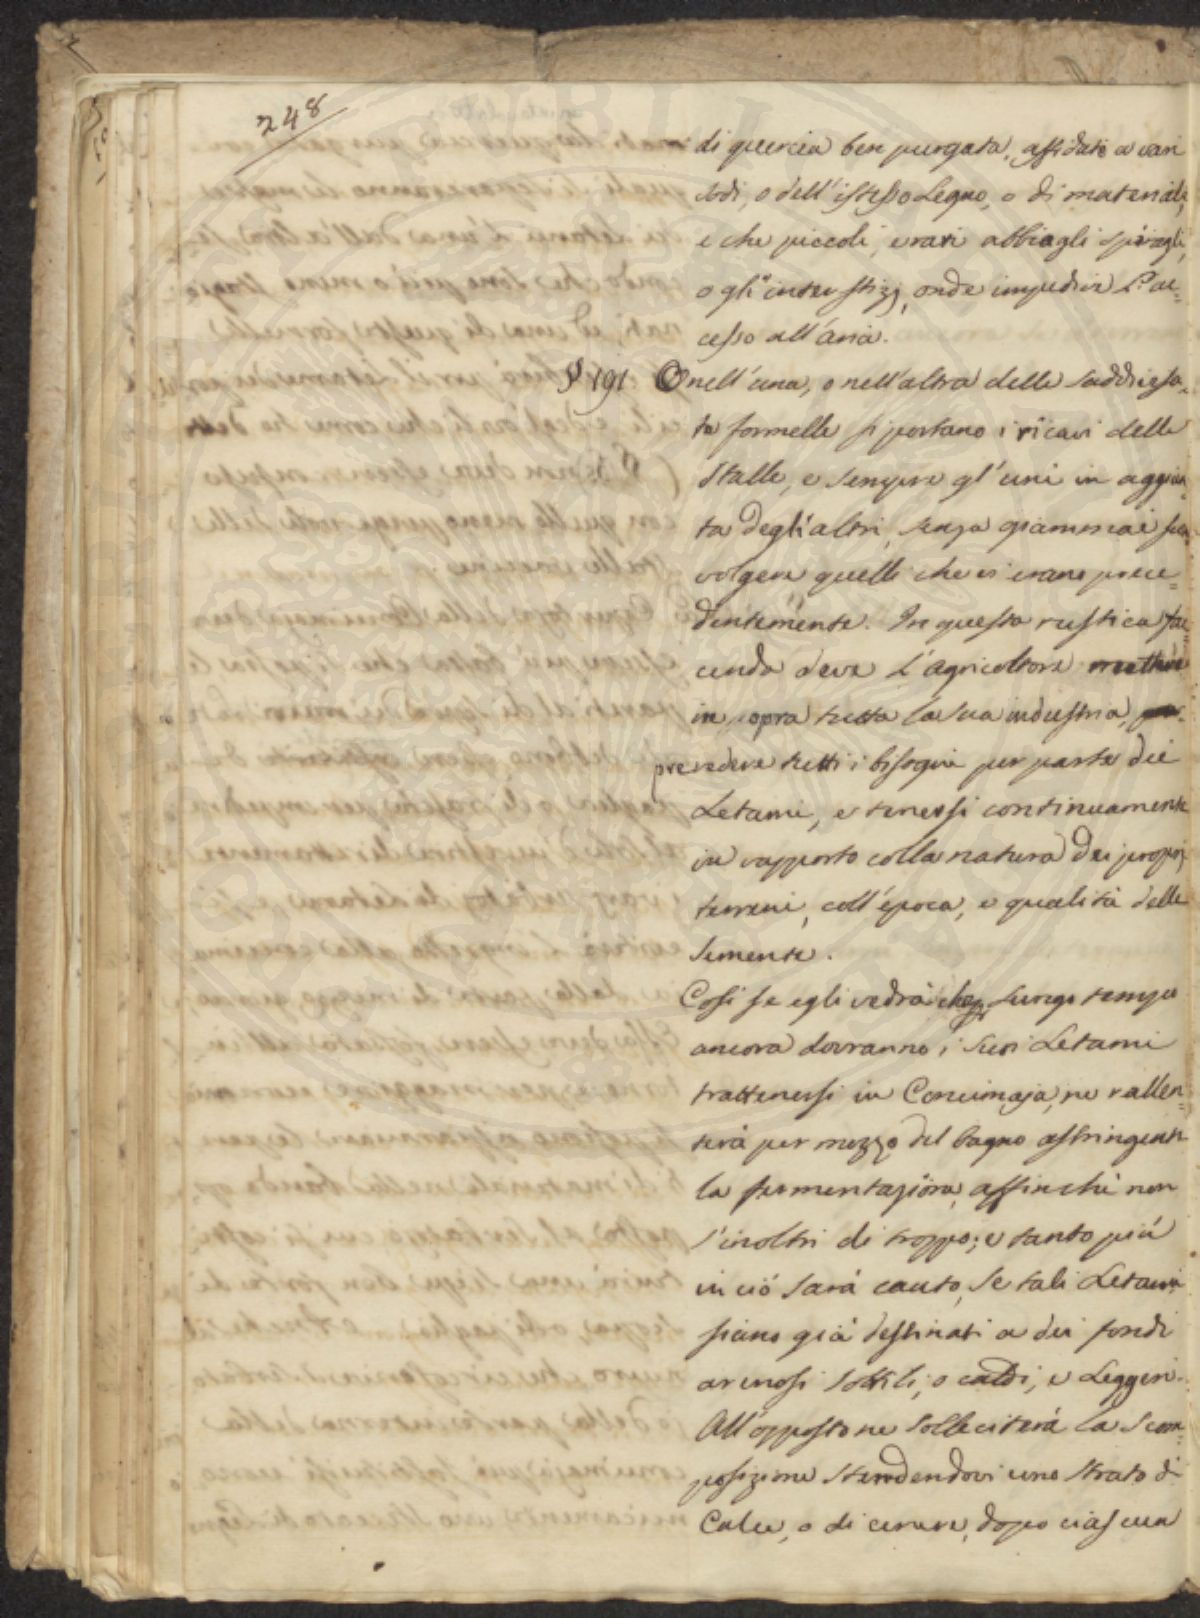 248
di quercia ben purgata, affidate a vari
sodi, o dell'istesso Legno, o di materiale,
e che piccoli, e rari abbia gli spiragli,
o gl'interstizj, onde impedire l'ac=
cesso all'aria.
§ 191 O nell'una, o nell'altra delle saddivisa=
te formelle si portano i ricavi delle
Stalle, e sempre gl'uni in aggiun=
ta degl'altri, senza giammai scon=
volgere quelli che vi erano prece=
dentemente. In questa rustica fac=
cenda deve L'agricoltore mettere
in opra tutta la sua industria,
prevedere tutti i bisogni per parte dei
Letami, e tenersi continuamente
in rapporto colla natura dei proprj
terreni, coll'epoca, e qualità delle
semente.
Così se egli vedrà che lungo tempo
ancora dovranno i suoi Letami
trattenersi in Concimaja, ne rallen=
terà per mezzo del bagno astringente
la fermentazione, affinchè non
s'inoltri di troppo; e tanto più
in ciò sarà cauto, se tali Letami
siano già destinati a dei fondi
arenosi sottili, o caldi, e Leggeri.
All'opposto ne solleciterà la scom=
posizione stendendovi uno strato di
Calce, o di cenere, dopo ciascuna